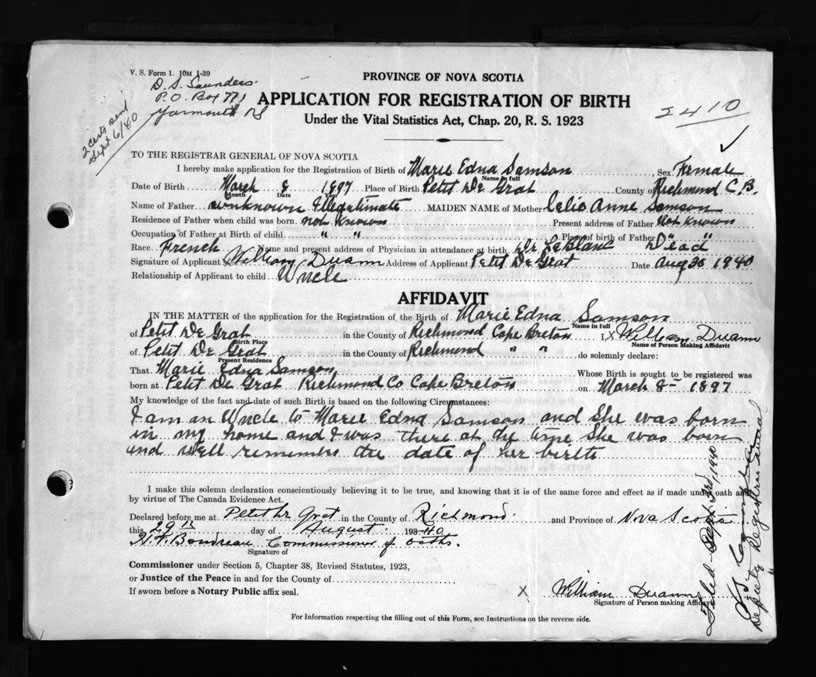 V. S. Form 1. 10M 1-39
D. S. Saunders
P.O. Box 771
Yarmouth NS
2 Certs send
Sept 6/40
PROVINCE OF NOVA SCOTIA
APPLICATION FOR REGISTRATION OF BIRTH
Under the Vital Statistics Act, Chap. 20, R. S. 1923
2410
TO THE REGISTRAR GENERAL OF NOVA SCOTIA
I hereby make application for the Registration of Birth of Marie Edna Samson Sex Female
Name in full
Date of Birth March 8 1897 Place of Birth Petit De Grat County of Richmond C.B.
Month Date Year
Name of Father unknown Illegitimate MAIDEN NAME of Mother Celia Anne Samson
Residence of Father when child was born not Known Present address of Father Not Known
Occupation of Father at Birth of child " " Place of birth of Father " "
Race French Name and present address of Physician in attendance at birth Dr LeBlanc Dead
Signature of Applicant William Duann Address of Applicant Petit De Grat Date Aug 30 1940
Relationship of Applicant to child Uncle
AFFIDAVIT
IN THE MATTER of the application for the Registration of the Birth of Marie Edna Samson
Name in full
of Petit De Grat in the County of Richmond Cape Breton I, X William Duann
Birth Place Name of Person Making Affidavit
of Petit De Grat in the County of Richmond " " do solemnly declare:
Present Residence
That Marie Edna Samson Whose Birth is sought to be registered was
born at Petit De Grat Richmond Co Cape Breton on March 8th 1897
My knowledge of the fact and date of such Birth is based on the following Circumstances:
I am an Uncle to Marie Edna Samson and she was born
in my home and I was there at the time she was born
and well remember the date of her birth
I make this solemn declaration conscientiously believing it to be true, and knowing that it is of the same force and effect as if made under oath and
by virtue of The Canada Evidence Act.
Declared before me at Petit de Grat in the County of Richmond and Province of Nova Scotia
this 29th day of August 1940
Boudreau Commissioner of oaths.
Signature of
Commissioner under Section 5, Chapter 38, Revised Statutes, 1923,
or Justice of the Peace in and for the County of
If sworn before a Notary Public affix seal.
X William Duann
Signature of Person making Affidavit
For Information respecting the filling out of this Form, see Instructions on the reverse side.
Filed Sept 3rd, 1940
Deputy Registrar General